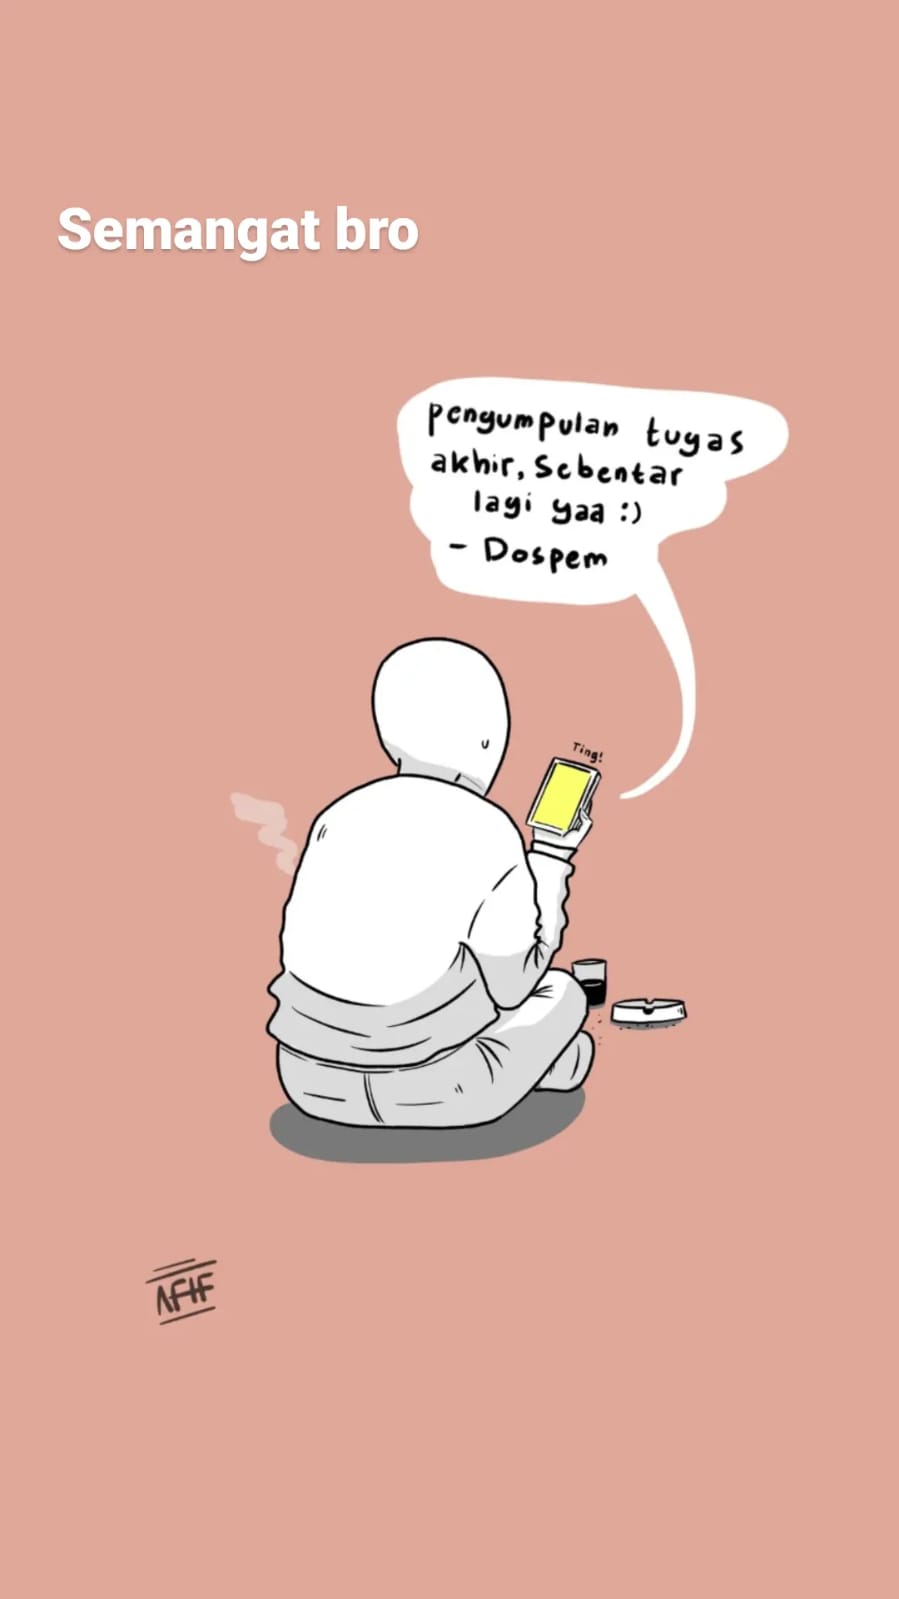 Semangat bro
pengumpulan tugas
akhir, Sebentar
lagi yaa :)
- Dospem
Ting!
AFIF